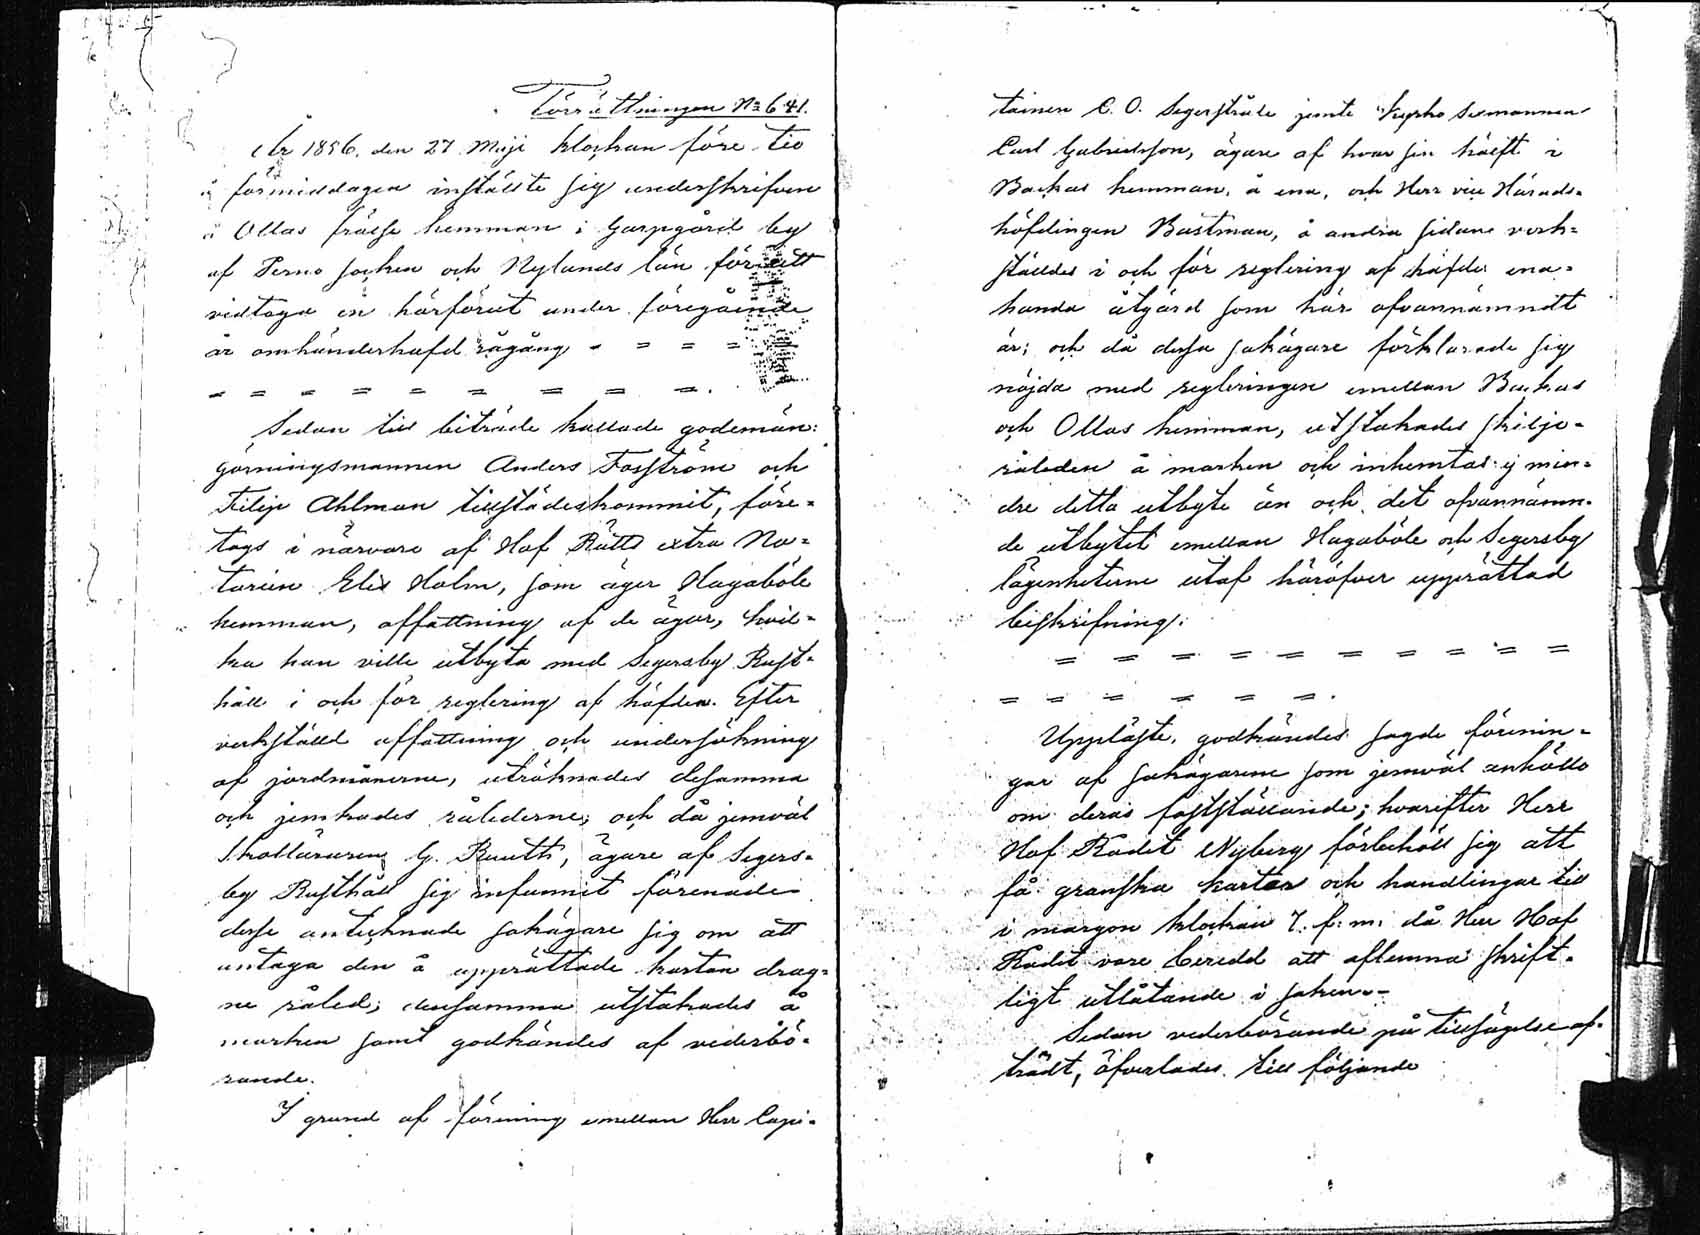 Förrättningen No 641.
År 1896, den 27 Maji klockan före tio
å förmiddagen inställte sig underskrifven
å Ollas frälse hemman i Garpgård by
af Perno socken och Nylands län för att
vidtaga en härförut under föregående
år omhänderhafd rågång - = = =
= = = = = = = = =.
Sedan till biträde kallade godemän:
görningsmannen Anders Forsström och
Filip Ahlman tillstädeskommit, före=
togs i närvaro af Hof Rätts extra No=
tarien Elis Holm, som äger Hagaböle
hemman, affattning af de ägor, hvil=
ka han ville utbyta med Segersby Rust=
håll i och för reglering af häfden. Efter
verkställd affattning och undersökning
af jordmånerne, uträknades desamma
och jemkades råledernes och då jemväl
Skolläraren G. Ruuth, ägare af Segers=
by Rusthåll sig infunnit förenade
desse antecknade sakägare sig om att
antaga den å upprättade kartan drag=
ne råled, densamma utstakades å
marken samt godkändes af vederbö=
rande.
I grund af förening emellan Herr Capi=
tainen C. O. Segerstråle jemte Sexmannen
Carl Gabrielsson, ägare af hvar sin hälft i
Backas hemman, å ena, och Herr vice Härads=
höfdingen Bastman, å andra sidan verk=
ställdes i och för reglering af häfde ena=
handa åtgärd som här ofvannämndt
är; och då dessa sakägare förklarade sig
nöjda med regleringen emellan Backas
och Ollas hemman, utstakades skilje=
råleden å marken och inhemtas ej min=
dre detta utbyte än och det ofvannämn=
de utbytet emellan Hagaböle och Segersby
lägenheterne utaf häröfver upprättad
beskrifning.
= = = = = = = = = =
= = = = = = =.
Uppläste, godkändes sagde förenin=
gar af sakägarene som jemväl anhöllo
om deras fastställande; hvarefter Herr
Hof Rådet Nyberg förbehöll sig att
få granska kartan och handlingar till
i morgon klockan 7. f. m. då Herr Hof
Rådet vore beredd att aflemna skrift=
ligt utlåtande i saken.-
Sedan vederbörande på tillsägelse af=
trädt, öfverlades till följande